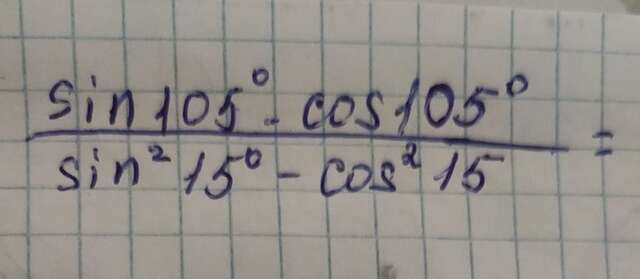 sin105° · cos105°
sin²15° - cos²15 =